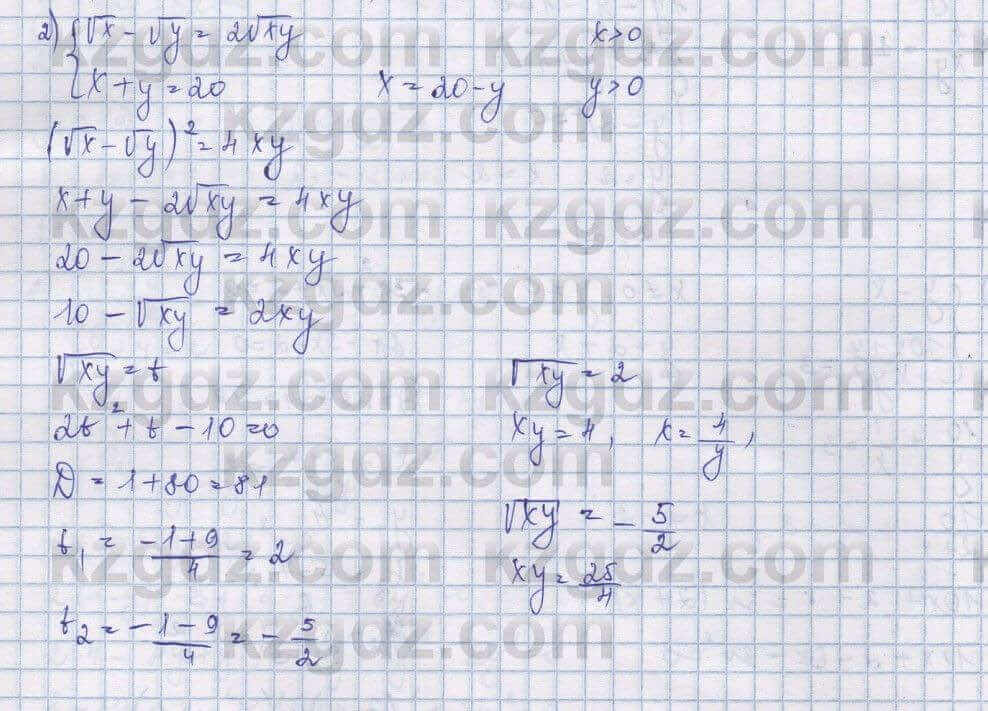 2) { √x - √y = 2√xy    x>0
x + y = 20    x = 20 - y    y>0
(√x - √y)² = 4xy
x + y - 2√xy = 4xy
20 - 2√xy = 4xy
10 - √xy = 2xy
√xy = t
2t² + t - 10 = 0
D = 1 + 80 = 81
t₁ = (-1+9)/4 = 2
t₂ = (-1-9)/4 = -5/2
√xy = 2
xy = 4,    x = 4/y,
√xy = -5/2
xy = 25/4
kzgdz.com